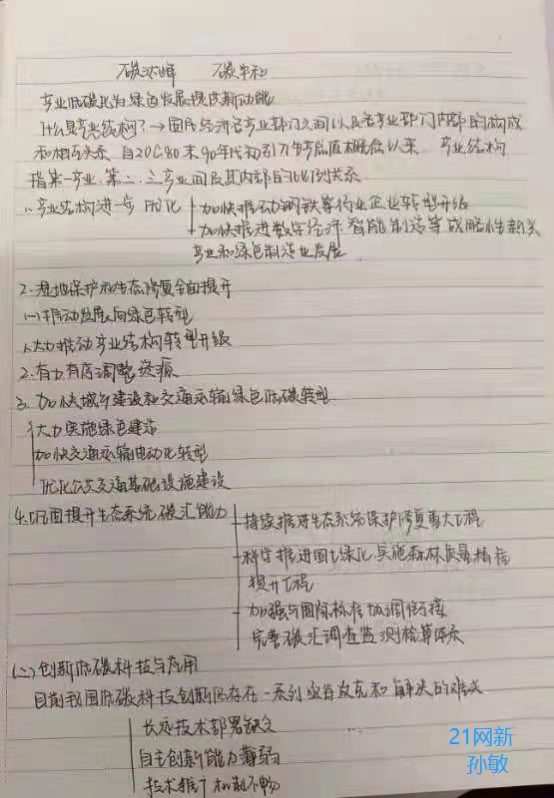 碳达峰 碳中和
产业低碳化为绿色发展提供新动能
什么是产业结构?→国民经济各产业部门之间以及各产业部门内部的构成
和相互关系 自20C80末90年代初引入生产总值概念以来 产业结构
指第一产业、第二、三产业间及其内部的比例关系
1、产业结构进一步优化 加快推动钢铁等行业企业转型升级
加快推进数字经济 智能制造等战略性新兴
产业和绿色制造业发展
2.湿地保护和生态修复全面提升
(一)推动发展向绿色转型
1.大力推动产业结构转型升级
2.有力有序调整能源
3.加快城乡建设和交通运输绿色低碳转型
大力实施绿色建造
加快交通运输电动化转型
优化公共交通基础设施建设
4.巩固提升生态系统碳汇能力 持续推进生态系统保护修复重大工程
科学推进国土绿化 实施森林质量精准
提升工程
加强与国际标准协调衔接
完善碳汇调查监测核算体系
(二)创新低碳科技与应用
目前我国低碳科技创新仍存在一系列亟待攻克和解决的难点
长远技术部署缺乏
自主创新能力薄弱
技术推广机制不畅
21网新
孙敏